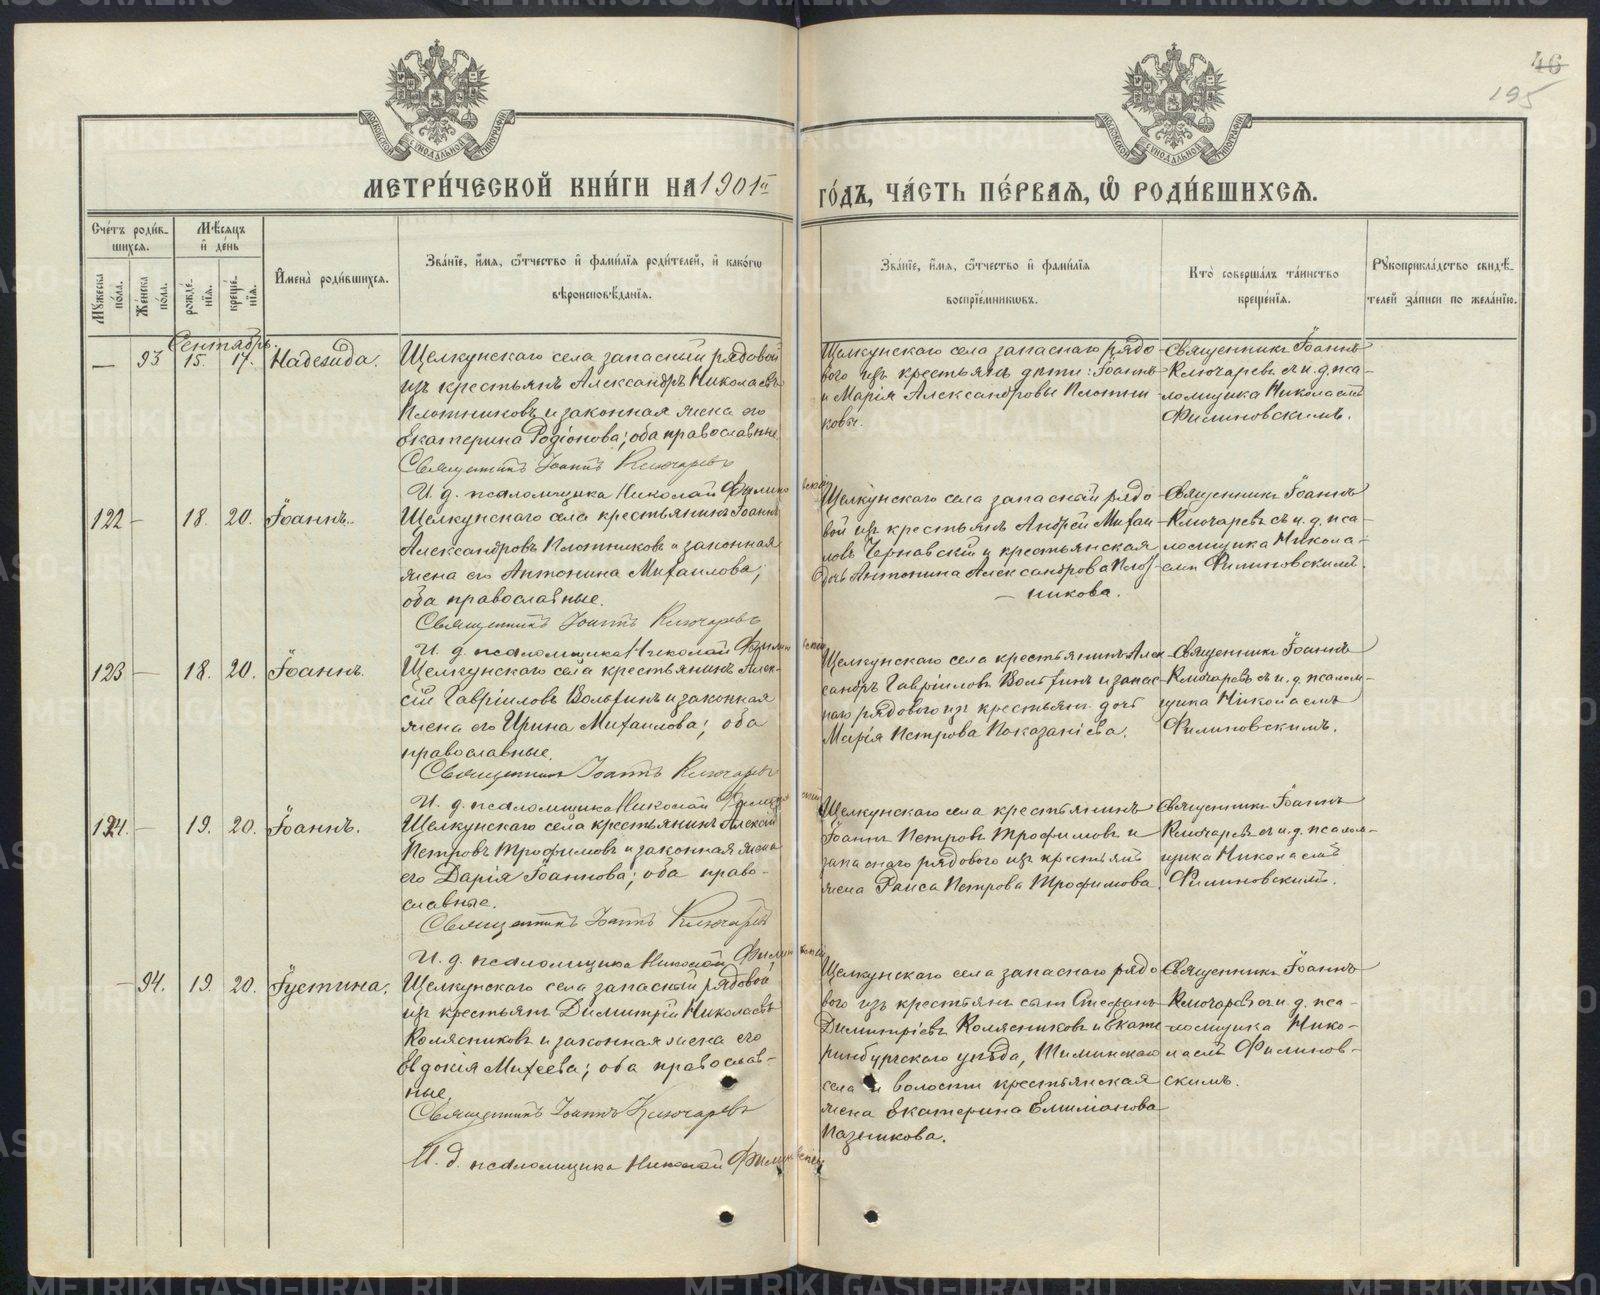 46
195
МЕТРИ́ЧЕСКОЙ КНИ́ГИ НА 1901й
ГО́ДЪ, ЧА́СТЬ ПЕ́РВАѦ, Ѿ РОДИ́ВШИХСѦ.
Сче́тъ роди́в-
шихсѧ.
Мѣ́сѧцъ
и҆ де́нь
И҆мена̀ роди́вшихсѧ.
Зва́нїе, и҆́мѧ, ѻ҆́тчество и҆ фами́лїѧ роди́телей, и҆ како́гѡ
вѣроисповѣ́данїѧ.
Мꙋ́жеска
по́ла.
Же́нска
по́ла.
рожде́-
нїѧ.
креще́-
нїѧ.
Зва́нїе, и҆́мѧ, ѻ҆́тчество и҆ фами́лїѧ
воспрїе́мникѡвъ.
Кто̀ соверша́лъ та́инство
креще́нїѧ.
Рꙋкоприкла́дство свидѣ́-
телей за́писи по жела́нїю.
Сентябрь.
— 93 15. 17. Надежда.
Щелкунскаго села запасный рядовой
изъ крестьянъ Александръ Николаевъ
Плотниковъ и законная жена его
Екатерина Родіонова; оба православные.
Священникъ Іоаннъ Ключаревъ
И. д. псаломщика Николай Филиновскій
Щелкунскаго села запаснаго рядо-
вого изъ крестьянъ дѣти: Іоаннъ
и Марія Александровы Плотни-
ковы.
Священникъ Іоаннъ
Ключаревъ съ и. д. пса-
ломщика Николаемъ
Филиновскимъ.
122 — 18. 20. Іоаннъ.
Щелкунскаго села крестьянинъ Іоаннъ
Александровъ Плотниковъ и законная
жена его Антонина Михаилова;
оба православные.
Священникъ Іоаннъ Ключаревъ
И. д. псаломщика Николай Филиновскій
Щелкунскаго села запасный рядо-
вой изъ крестьянъ Андрей Михаи-
ловъ Чернавскій и крестьянская
дочь Антонина Александрова Плот-
никова.
Священникъ Іоаннъ
Ключаревъ съ и. д. пса-
ломщика Никола-
емъ Филиновскимъ.
123 — 18. 20. Іоаннъ.
Щелкунскаго села крестьянинъ Алек-
сій Гавріиловъ Вольхинъ и законная
жена его Ирина Михаилова; оба
православные.
Священникъ Іоаннъ Ключаревъ
И. д. псаломщика Николай Филиновскій
Щелкунскаго села крестьянинъ Алек-
сандръ Гавріиловъ Вольхинъ и запас-
наго рядового изъ крестьянъ дочь
Марія Петрова Показаніева.
Священникъ Іоаннъ
Ключаревъ съ и. д. псалом-
щика Николаемъ
Филиновскимъ.
124. — 19. 20. Іоаннъ.
Щелкунскаго села крестьянинъ Алексій
Петровъ Трофимовъ и законная жена
его Дарія Іоаннова; оба право-
славные.
Священникъ Іоаннъ Ключаревъ
И. д. псаломщика Николай Филиновскій
Щелкунскаго села крестьянинъ
Іоаннъ Петровъ Трофимовъ и
запаснаго рядового изъ крестьянъ
жена Раиса Петрова Трофимова.
Священникъ Іоаннъ
Ключаревъ съ и. д. псалом-
щика Николаемъ
Филиновскимъ.
— 94. 19. 20. Іустина.
Щелкунскаго села запасный рядовой
изъ крестьянъ Димитрій Николаевъ
Колясниковъ и законная жена его
Евдокія Михеева; оба православ-
ные.
Священникъ Іоаннъ Ключаревъ
И. д. псаломщика Николай Филиновскій
Щелкунскаго села запаснаго рядо-
вого изъ крестьянъ сынъ Стефанъ
Димитріевъ Колясниковъ и Екате-
ринбургскаго уѣзда, Тиминскаго
села и волости крестьянская
жена Екатерина Емиліанова
Пазникова.
Священникъ Іоаннъ
Ключаревъ съ и. д. пса-
ломщика Нико-
лаемъ Филинов-
скимъ.
METRIKI.GASO-URAL.RU